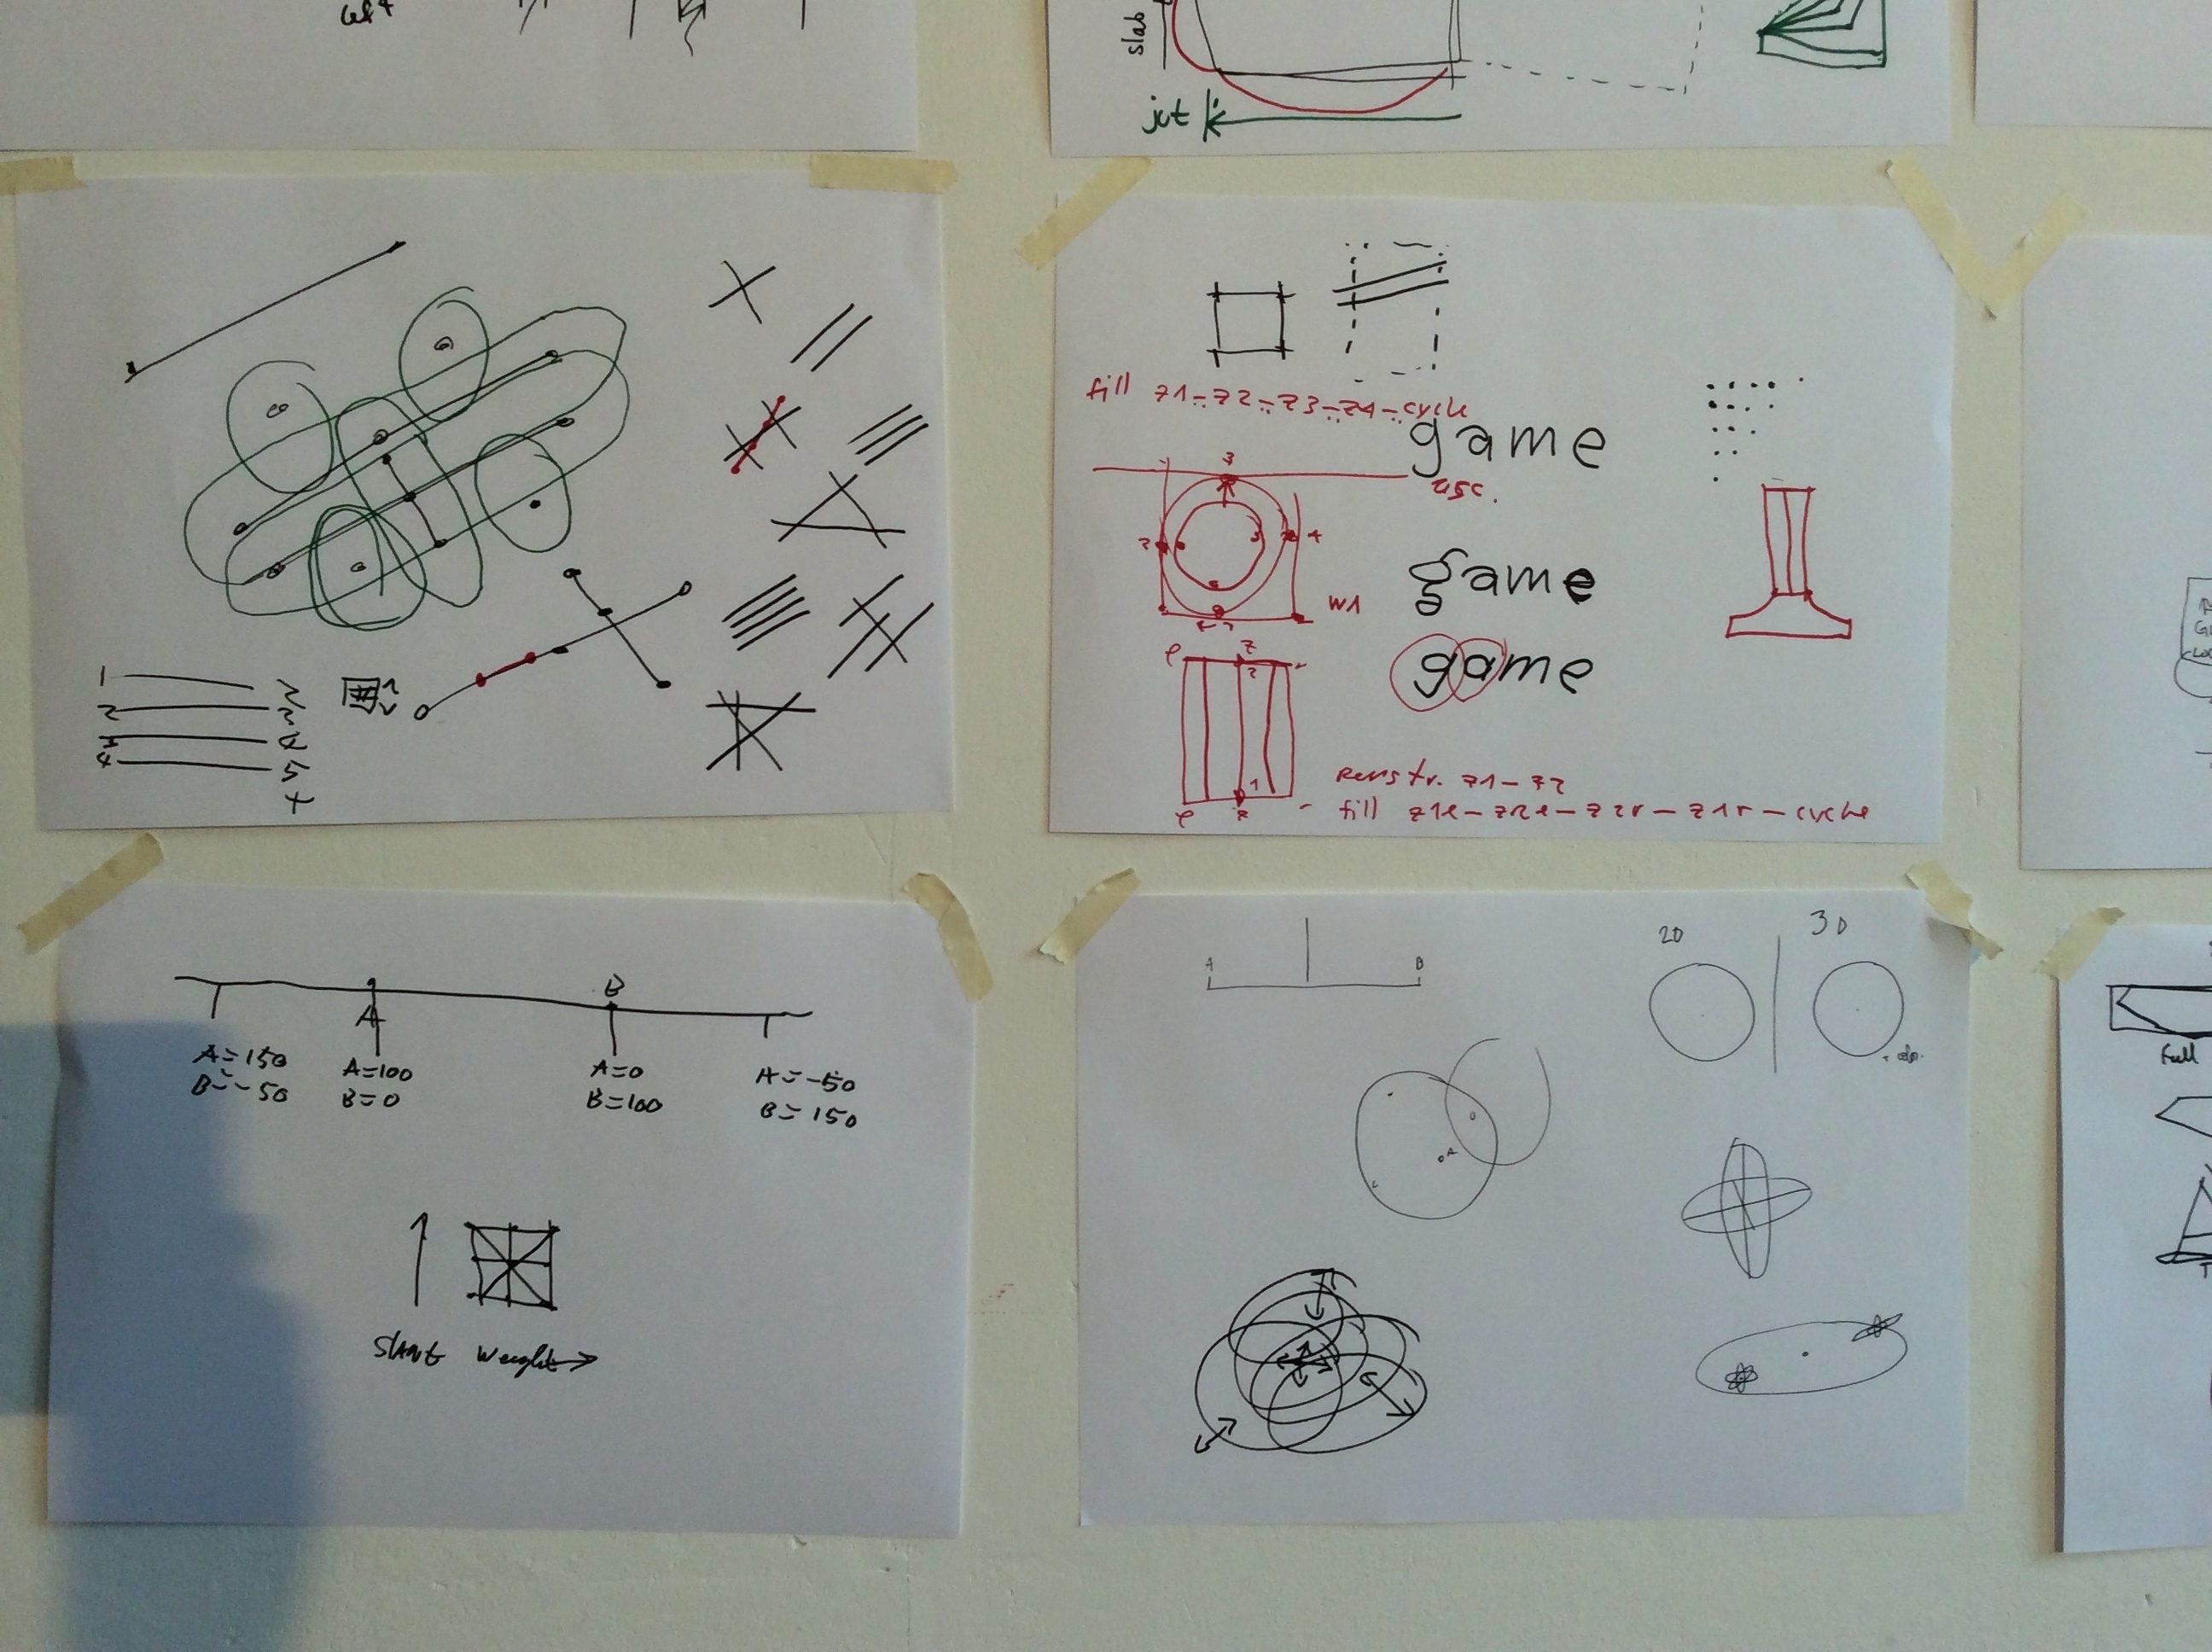 left
slab
jut
fill z1--z2--z3--z4--cycle
game
asc.
3
2
4
game
W1
game
1
2
penstr. z1-z2
fill z1l-z2l-z2r-z1r-cycle
1
2
3
4
5
B
A
A=150
B=-50
A=100
B=0
A=0
B=100
A=-50
B=150
Slant Weight
A
B
2D
3D
A
Full